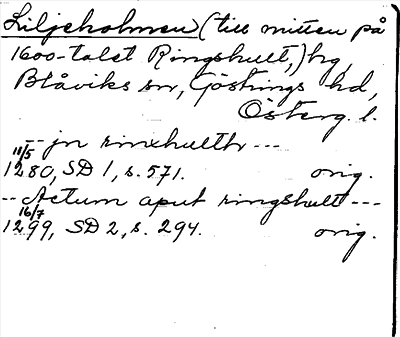 Liljeholmen (till mitten på
1600-talet Ringshult,) hg,
Blåviks sn, Göstrings hd,
Österg. l.
-- jn rinxhulthr ---
11/5
1280, SD 1, s. 571. orig.
-- Actum aput ringshult ---
16/7
1299, SD 2, s. 294. orig.